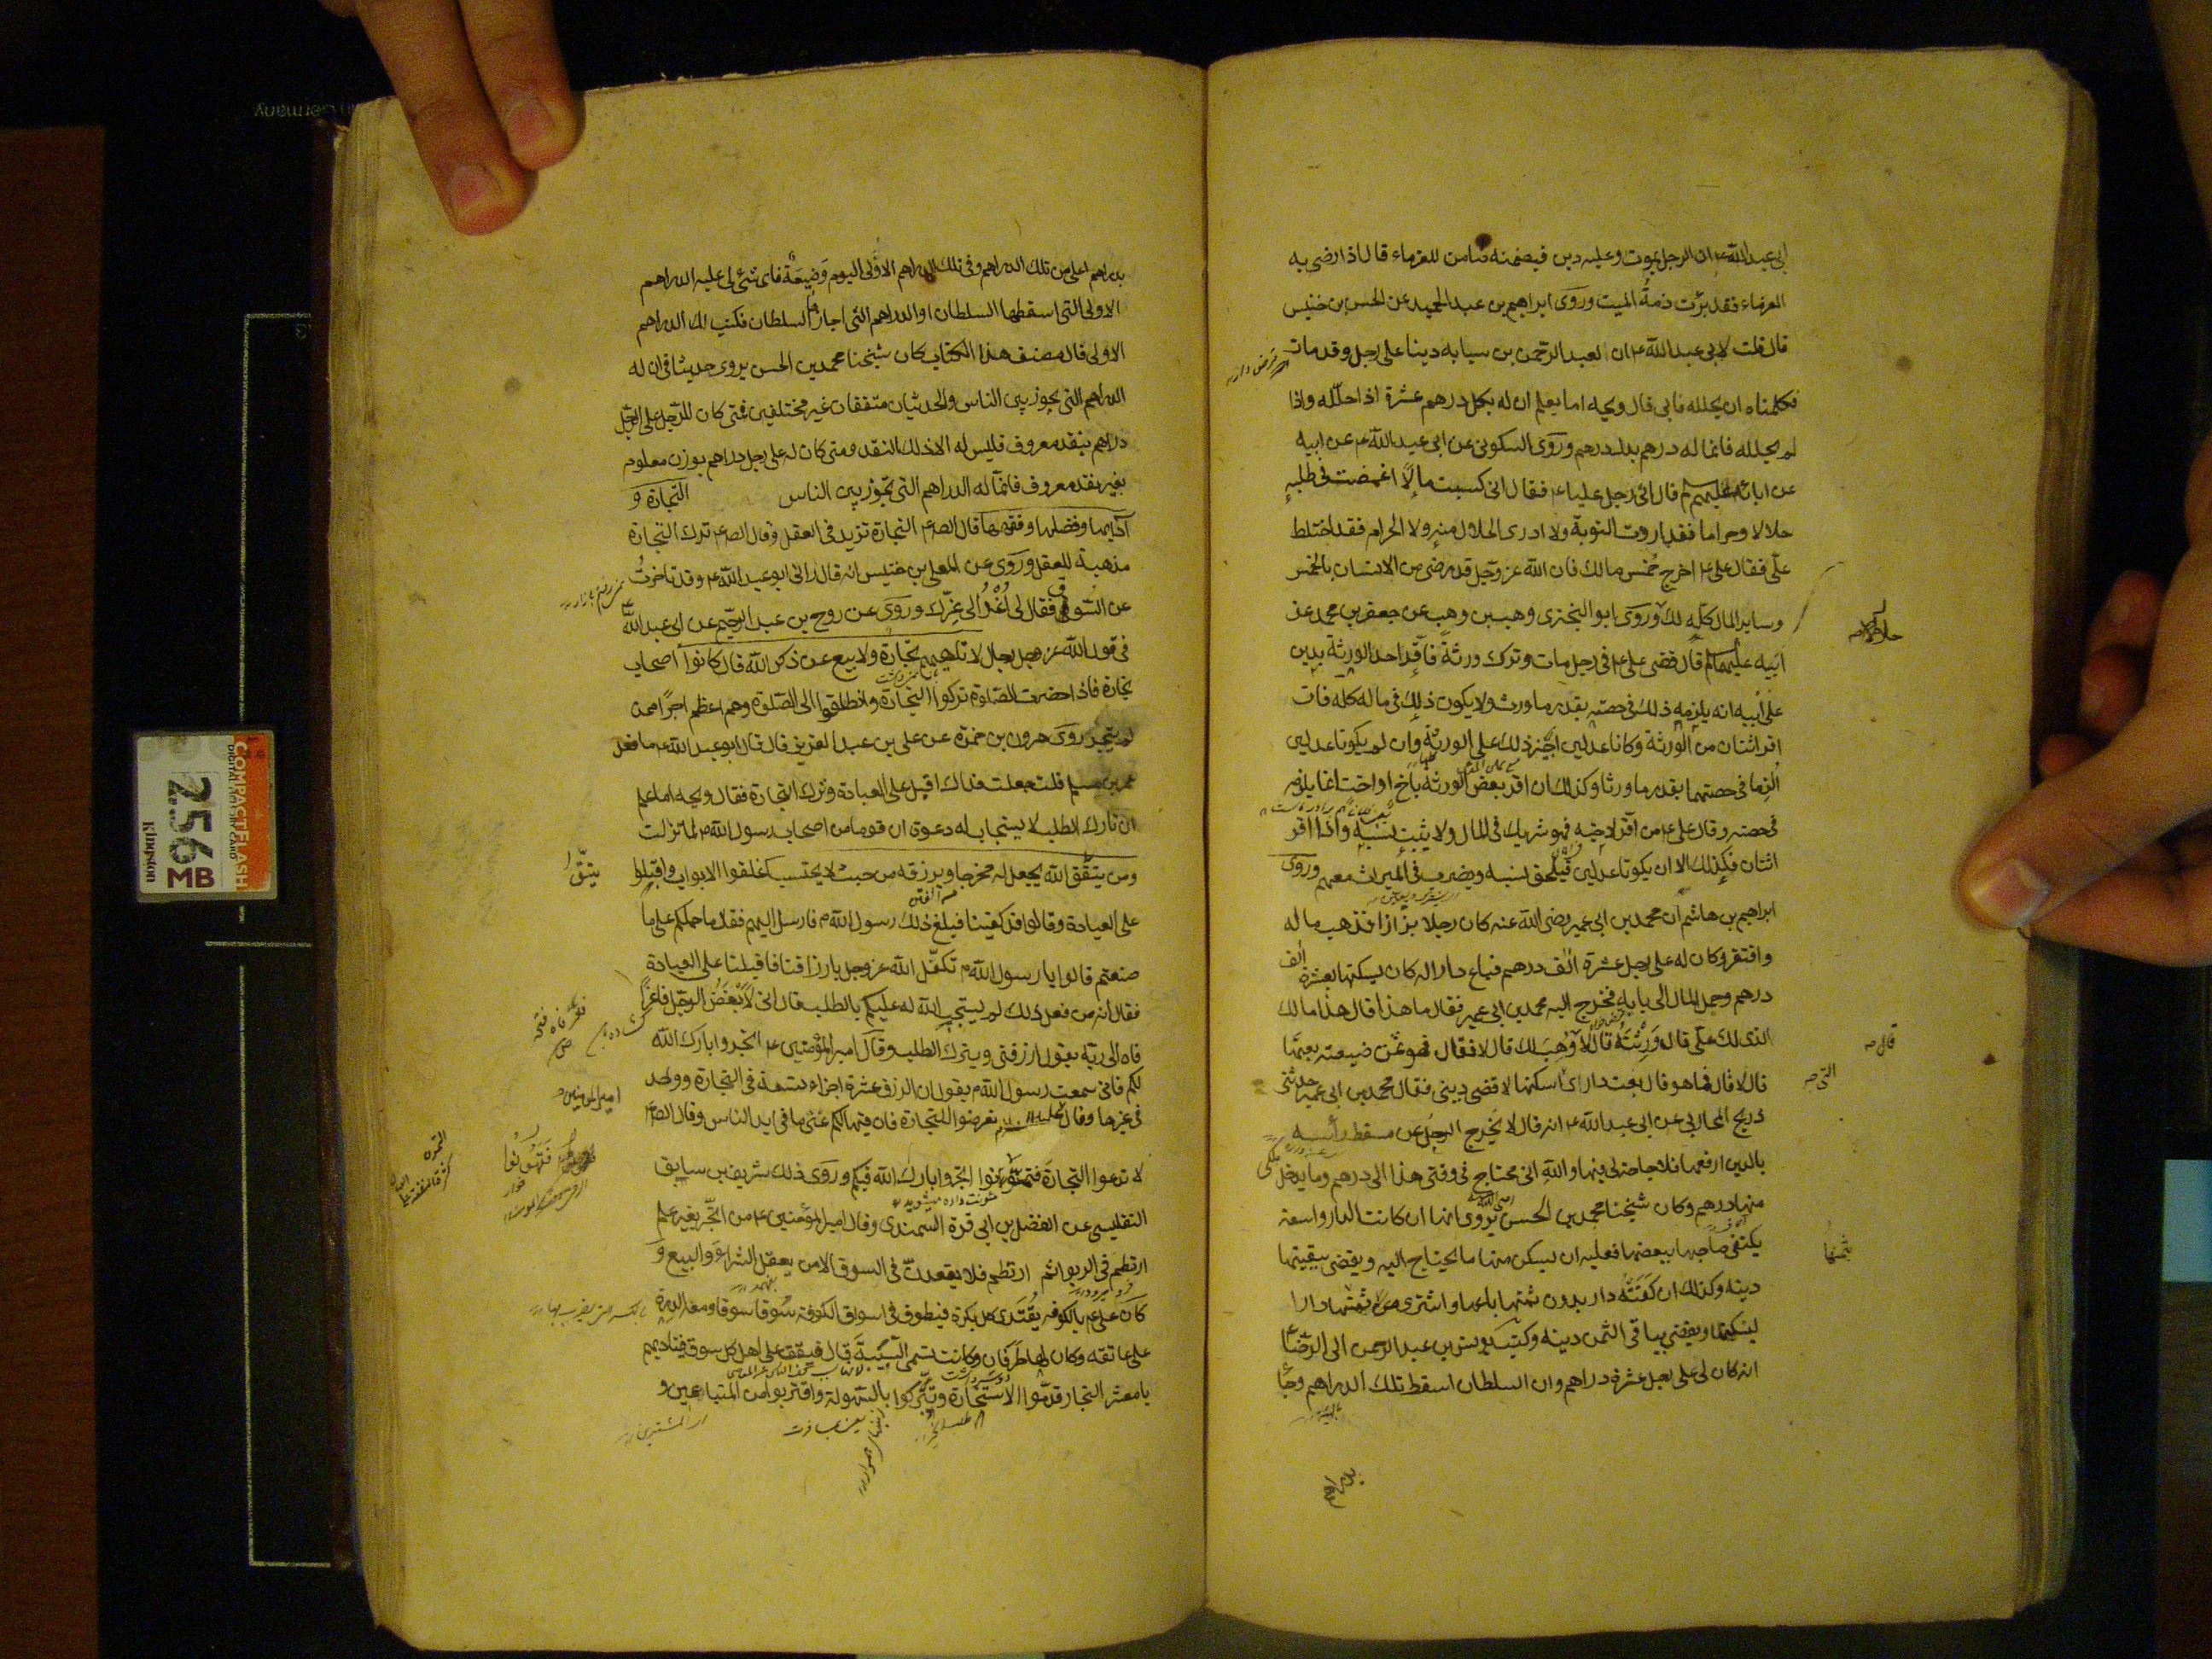 ابی عبد الله ع ان الرجل یموت و علیه دین فیضمنه ضامن للغرماء قال اذا رضی به
الغرماء فقد برئت ذمة المیت و روی ابراهیم بن عبد الحمید عن الحسن بن خنیس
قال قلت لابی عبد الله ع ان لعبد الرحمن بن سیابه دینا علی رجل و قد مات
فکلمناه ان یحلله فابی قال ویحه اما یعلم ان له بکل درهم عشرة اذا حلله و اذا
لم یحلله فانما له درهم بدل درهم و روی السکونی عن ابی عبد الله ع عن ابیه
عن ابائه علیهم قال اتی رجل علیا ع فقال انی کسبت مالا اغمضت فی طلبه
حلالا و حراما فقد اردت التوبة و لا ادری الحلال منه و لا الحرام فقد اختلط
علی فقال علی ع اخرج خمس مالک فان الله عز و جل قد رضی من الانسان بالخمس
و سایر المال کله لک و روی ابو البختری وهب بن وهب عن جعفر بن محمد عن
ابیه علیهما قال قضی علی ع فی رجل مات و ترک ورثة فاقر احد الورثة بدین
علی ابیه انه یلزمه ذلک فی حصته بقدر ما ورث و لا یکون ذلک فی ماله کله فان
اقر اثنان من الورثة و کانا عدلین اجیز ذلک علی الورثة و ان لم یکونا عدلین
الزما فی حصتهما بقدر ما ورثا و کذلک ان اقر بعض الورثة باخ او اخت انما یلزمه
فی حصته و قال علی ع من اقر لاخیه فهو شریک فی المال و لا یثبت نسبه و اذا اقر
اثنان فکذلک الا ان یکونا عدلین فیلحق نسبه و یضرب فی المیراث معهم و روی
ابراهیم بن هاشم ان محمد بن ابی عمیر رضی الله عنه کان رجلا بزازا فذهب ماله
و افتقر و کان له علی رجل عشرة الف درهم فباع دارا له کان یسکنها بعشرة الف
درهم و حمل المال الی بابه فخرج الیه محمد بن ابی عمیر فقال ما هذا قال هذا مالک
الذی لک علی قال ورثته قال لا وهب لک قال لا فقال فهو ثمن ضیعته بعتها
قال لا قال فما هو قال بعت داری اسکنها لاقضی دینی فقال محمد بن ابی عمیر حدثنی
ذریح المحاربی عن ابی عبد الله ع انه قال لا یخرج الرجل عن مسقط راسه
بالدین ارفعها فلا حاجة لی فیها و الله انی محتاج فی وقتی هذا الی درهم و ما یدخل ملکی
منها درهم و کان شیخنا محمد بن الحسن یروی انها ان کانت الدار واسعة
یکتفی صاحبها ببعضها فعلیه ان یسکن منها ما یحتاج الیه و یقضی ببقیتها
دینه و کذلک ان کفته دار بدون ثمنها باعها و اشتری بثمنها دارا
لیسکنها و یقضی بباقی الثمن دینه و کتب یونس بن عبد الرحمن الی الرضا ع
انه کان لی علی رجل عشرة دراهم و ان السلطان اسقط تلک الدراهم و جا
حلال
قال
التی
ثمنها
بدراهم
بدراهم اعلی من تلک الدراهم و فی تلک الدراهم الاولی الیوم وضیعة فای شئ لی علیه الدراهم
الاولی التی اسقطها السلطان او الدراهم التی اجازها السلطان فکتب لک الدراهم
الاولی قال مصنف هذا الکتاب کان شیخنا محمد بن الحسن یروی حدیثا فی ان له
الدراهم التی یجوز بین الناس و الحدیثان متفقان غیر مختلفین فمتی کان للرجل علی الرجل
دراهم بنقد معروف فلیس له الا ذلک النقد و متی کان له علی رجل دراهم بوزن معلوم
بغیر نقد معروف فانما له الدراهم التی تجوز بین الناس التجارة و
آدابها و فضلها و فقهها قال الص ع التجارة تزید فی العقل و قال الص ع ترک التجارة
مذهبة للعقل و روی عن المعلی بن خنیس انه قال رانی ابو عبد الله ع و قد تاخرت
عن السوق فقال لی اغد الی عزک و روی عن روح بن عبد الرحیم عن ابی عبد الله
فی قول الله عز و جل رجال لا تلهیهم تجارة و لا بیع عن ذکر الله قال کانوا اصحاب
تجارة فاذا حضرت الصلوة ترکوا التجارة و انطلقوا الی الصلوة و هم اعظم اجرا ممن
لم یتجر روی هرون بن حمزة عن علی بن عبد العزیز قال قال ابو عبد الله ع ما فعل
عمر بن مسلم قلت جعلت فداک اقبل علی العبادة و ترک التجارة فقال ویحه اما علم
ان تارک الطلب لا یستجاب له دعوة ان قوما من اصحاب رسول الله لما نزلت
و من یتق الله یجعل له مخرجا و یرزقه من حیث لا یحتسب اغلقوا الابواب و اقبلوا
علی العبادة و قالوا قد کفینا فبلغ ذلک رسول الله فارسل الیهم فقال ما حملکم علی ما
صنعتم قالوا یا رسول الله تکفل الله عز و جل بارزاقنا فاقبلنا علی العبادة
فقال انه من فعل ذلک لم یستجب الله له علیکم بالطلب قال انی لابغض الرجل فاغرا
فاه الی ربه یقول ارزقنی و یترک الطلب و قال امیر المؤمنین ع اتجروا بارک الله
لکم فانی سمعت رسول الله یقول ان الرزق عشرة اجزاء تسعة فی التجارة و واحد
فی غیرها و قال تعرضوا للتجارة فان فیها لکم غنی عما فی اید الناس و قال الص ع
لا تدعوا التجارة فتهونوا اتجروا بارک الله فیکم و روی ذلک شریف بن سابق
التفلیسی عن الفضل بن ابی قرة السمندی و قال امیر المؤمنین ع من اتجر بغیر علم
ارتطم فی الربوا ثم ارتطم فلا یقعدن فی السوق الا من یعقل الشراء و البیع و
کان علی ع بالکوفه یغتدی کل بکرة فیطوف فی اسواق الکوفة سوقا سوقا و معه الدرة
علی عاتقه و کان لها طرفان و کانت تسمی السبیبة قال فیقف علی اهل کل سوق فینادیهم
یا معشر التجار قدموا الاستخارة و تبرکوا بالسهولة و اقتربوا من المتباعین و
یتق
امیر المؤمنین
فتهونوا
COMPACTFLASH
256
MB
Kingston
Germany